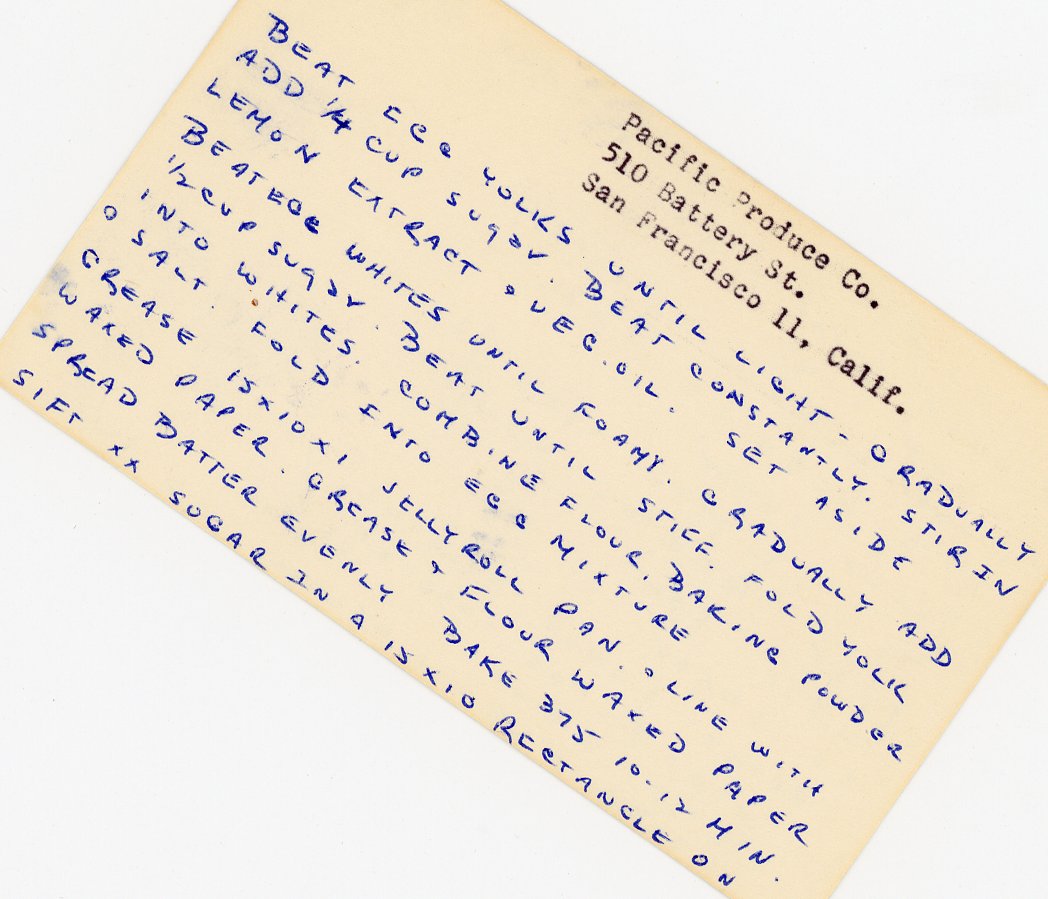 Pacific Produce Co.
510 Battery St.
San Francisco 11, Calif.
BEAT EGG YOLKS UNTIL LIGHT - GRADUALLY
ADD 1/4 CUP SUGAR. BEAT CONSTANTLY. STIR IN
LEMON EXTRACT & VEG. OIL. SET ASIDE
BEAT EGG WHITES UNTIL FOAMY. GRADUALLY ADD
1/2 CUP SUGAR. BEAT UNTIL STIFF. FOLD YOLK
INTO WHITES. COMBINE FLOUR, BAKING POWDER
& SALT. FOLD INTO EGG MIXTURE
GREASE 15X10X1 JELLYROLL PAN. & LINE WITH
WAXED PAPER. GREASE & FLOUR WAXED PAPER
SPREAD BATTER EVENLY BAKE 375 10-12 MIN.
SIFT XX SUGAR IN A 15X10 RECTANGLE ON